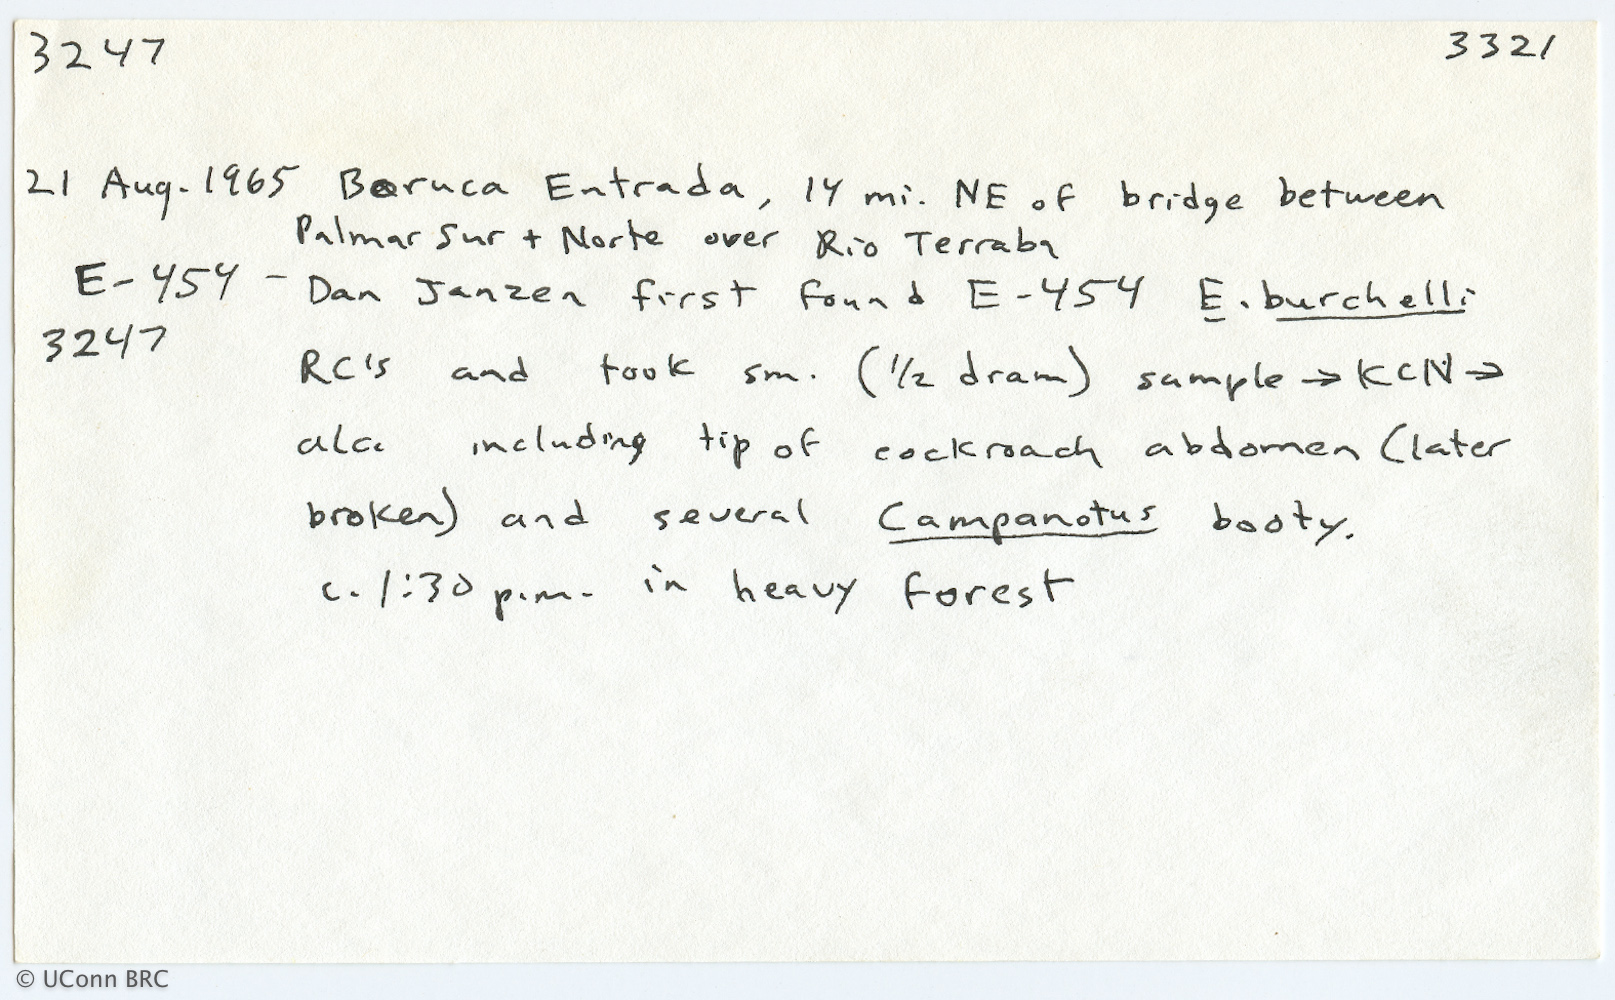 3247 3321
21 Aug. 1965 Boruca Entrada, 14 mi. NE of bridge between
Palmar Sur + Norte over Rio Terraba
E-454 - Dan Janzen first found E-454 E. burchelli
3247
RC's and took sm. (1/2 dram) sample → KCN →
alc. including tip of cockroach abdomen (later
broken) and several Campanotus booty.
c. 1:30 p.m. in heavy forest
© UConn BRC